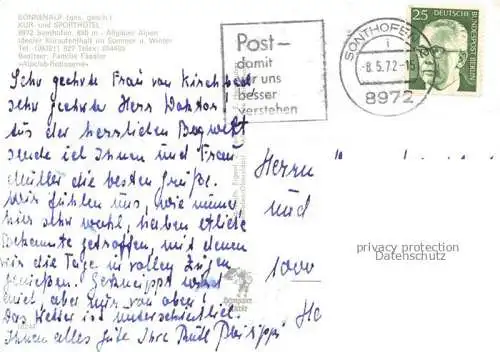 SONNENALP (ges. gesch.)
KUR- und SPORTHOTEL
8972 Sonthofen, 850 m - Allgäuer Alpen
idealer Kuraufenthalt im Sommer u. Winter
Besitzer: Familie Fäßler
Post-
damit
wir uns
besser
verstehen
SONTHOFEN
i
-8.5.72-15
8972
25
DEUTSCHE
BUNDESPOST BERLIN
Sehr geehrte Frau von Kirschbaum
sehr geehrter Herr Doktor!
Aus der herrlichen Bergwelt
sende ich Ihnen und Frau
Müller die besten Grüße.
Wir fühlen uns, wie immer
hier sehr wohl, haben etliche
Bekannte getroffen, mit denen
wir die Tage in vollen Zügen
genießen. Gekneippt wird
nicht, aber nur von oben!
Das Wetter ist unterschiedlich.
Ihnen alles Gute Ihre Ruth Philippi
Herrn
und
1000
privacy protection
Datenschutz